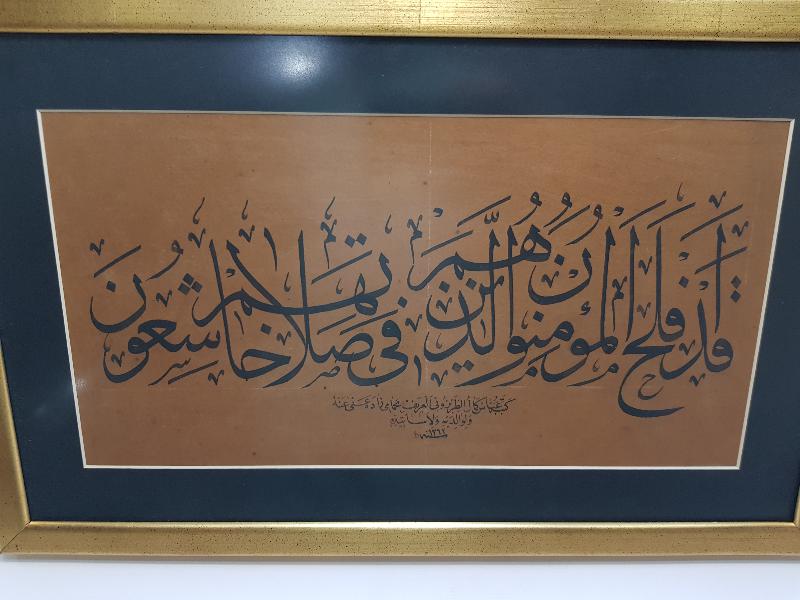 قد أفلح المؤمنون الذين هم في صلاتهم خاشعون
كتبه عباس الطرزوني المعروف بحمامي زاده عفي عنه
ولوالديه ولأساتيذه
سنة ١٢٦٢